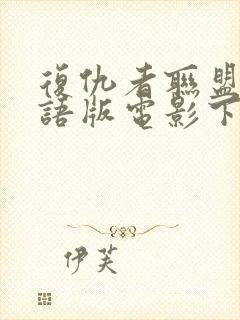 復仇者聯盟
語版電影下
伊芙